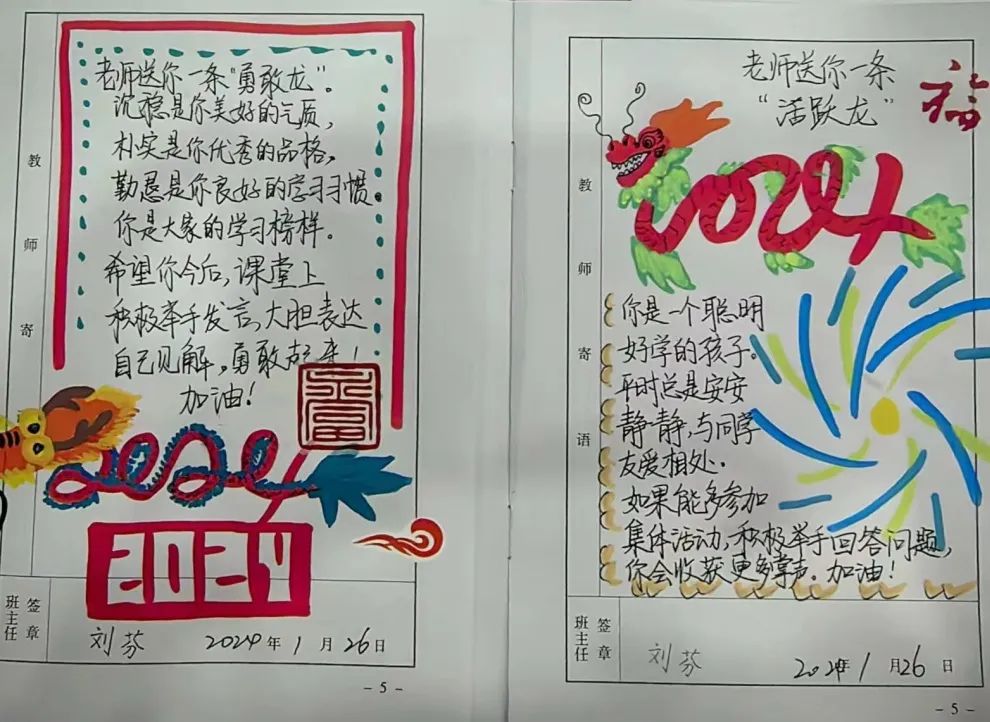 教师寄
老师送你一条“勇敢龙”。
沉稳是你美好的气质，
朴实是你优秀的品格，
勤恳是你良好的学习习惯。
你是大家的学习榜样。
希望你今后，课堂上
积极举手发言，大胆表达
自己见解，勇敢
加油！
2024
2024
班主任
签章
刘芬
2024年1月26日
- 5 -
教师寄语
老师送你一条
“活跃龙”
福
2024
你是一个聪明
好学的孩子。
平时总是安安
静静，与同学
友爱相处。
如果能多参加
集体活动，积极举手回答问题，
你会收获更多掌声。加油！
班主任
签章
刘芬
2024年1月26日
- 5 -